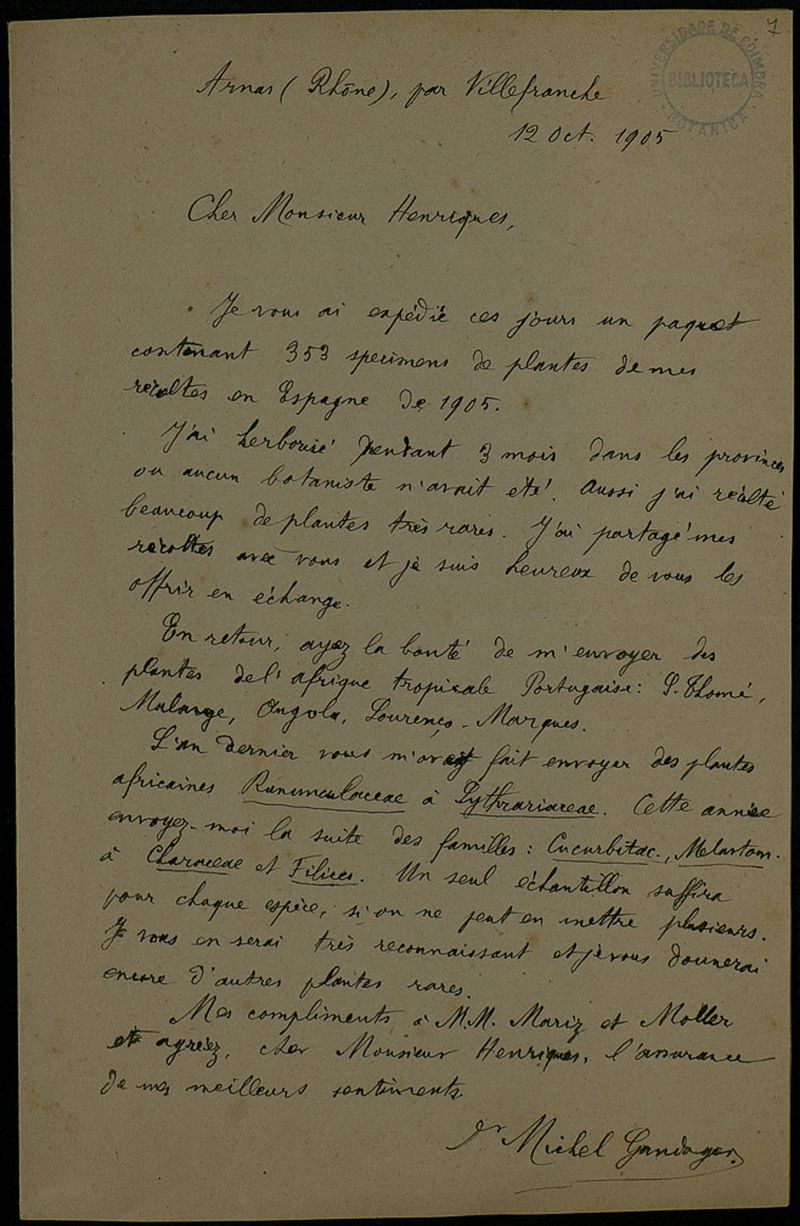 7
UNIVERSIDADE DE COIMBRA
BIBLIOTECA
BOTANICA
Arnas (Rhône), par Villefranche
12 Oct. 1905
Cher Monsieur Henriques,
Je vous ai expédié ces jours un paquet
contenant 353 specimens de plantes de mes
récoltes en Espagne de 1905.
J'ai herborisé pendant 3 mois dans les provinces
ou aucun botaniste n'avait été. Aussi j'ai récolté
beaucoup de plantes très rares. J'ai partagé mes
récoltes avec vous et je suis heureux de vous les
offrir en échange.
En retour, ayez la bonté de m'envoyer des
plantes de l'afrique tropicale Portugaise: S. Thomé,
Malange, Angola, Lourenço-Marques.
L'an dernier vous m'avez fait envoyer des plantes
africaines Ranunculaceae à Lythrariaceae. Cette année
envoyez-moi la suite des familles: Cucurbitac., Melastom.
à Characeae et Filices. Un seul échantillon suffira
pour chaque espèce, si on ne peut en mettre plusieurs.
Je vous en serai très reconnaissant et je vous donnerai
encore d'autres plantes rares.
Mes compliments à M.M. Mariz et Moller
et agréez, cher Monsieur Henriques, l'assurance
de mes meilleurs sentiments.
Dr Michel Gandoger.